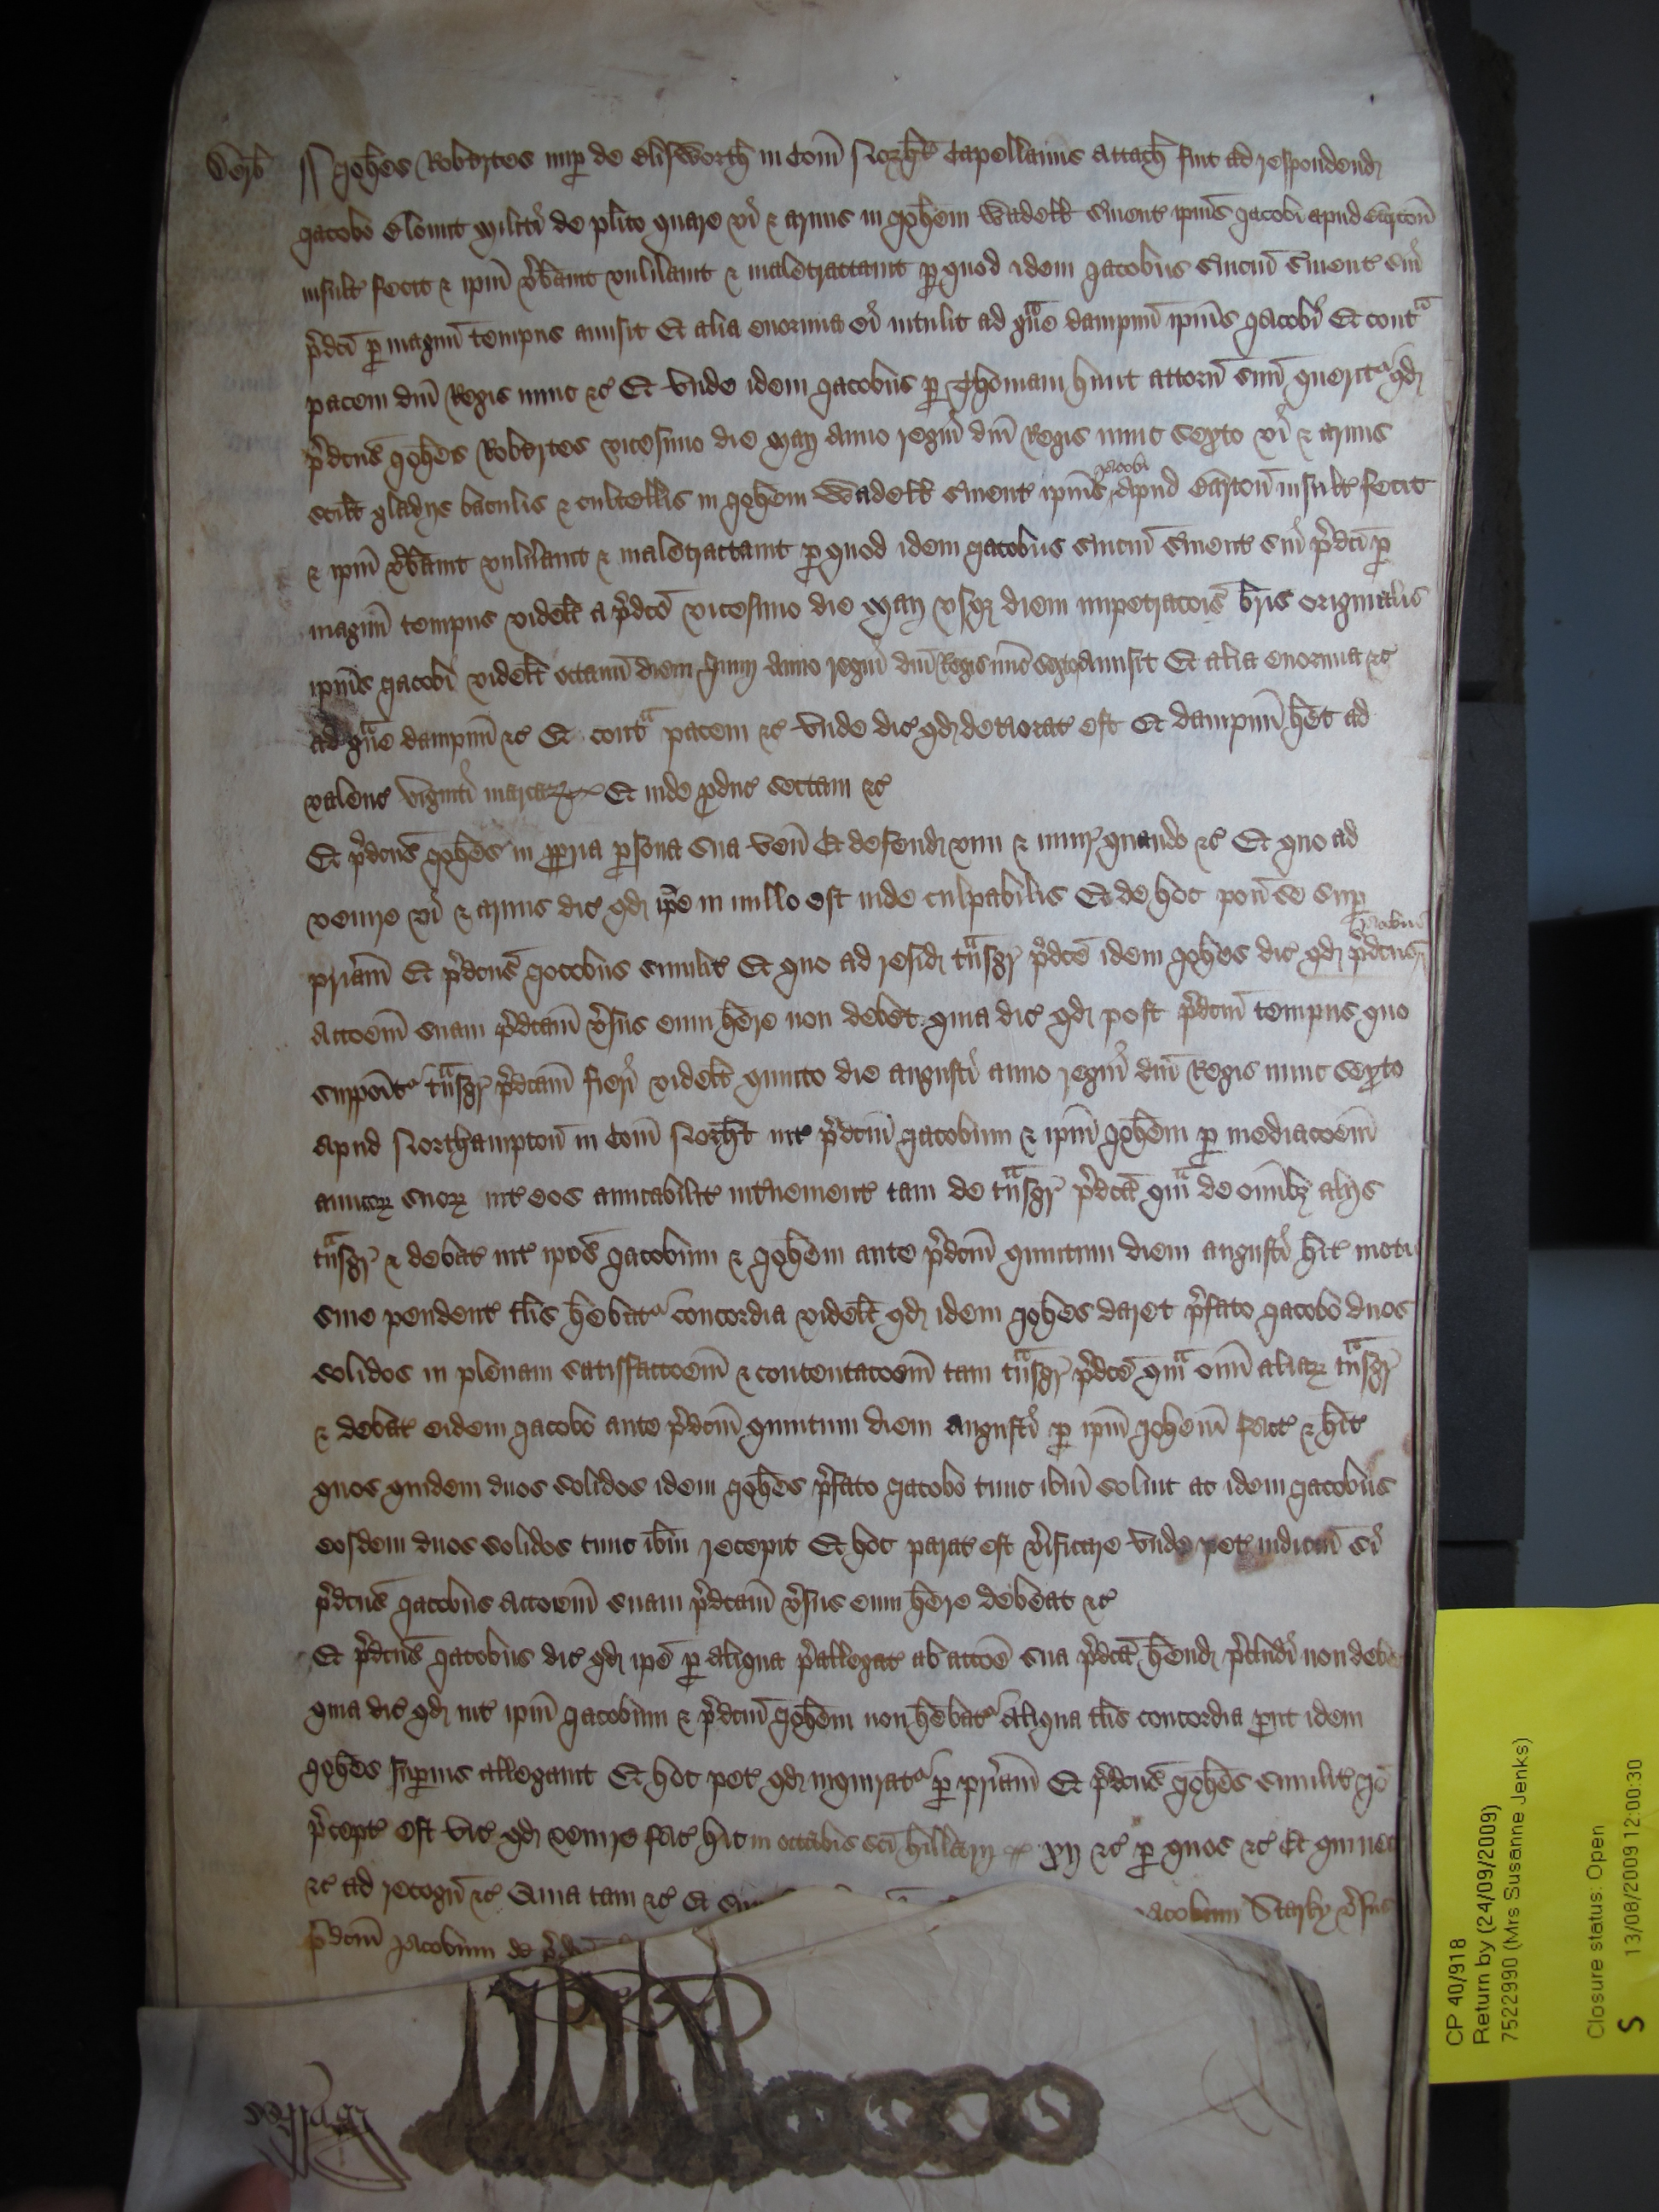 Derb
ss Joħes Robertes nup de Elisworth in Com̄ Norħt Capellanus attach fuit ad respondend
Jacobo Blount militi de plito quare vi & armis in Joħem Wadell servient ipius Jacobi apud Barton
insult fecit & ipm v̓bavit vuln̓avit & maletractavit p quod idem Jacobus s̓viciu s̓vient sui
p̓dci p magnu tempus amisit Et alia enormia ei intulit ad gᵃve dampnu ipius Jacobi Et contᵃ
pacem dni Regis nunc &c Et unde idem Jacobus p Thomam Hunt attorn suu querit qd
p̓dcus Joħes Robertes vicesimo die Maij anno regni dni Regis nunc sexto vi & armis
scilt gladijs baculis & cultellis in Joħem Wadell s̓vient ipius Jacobi apud Barton insult fecit
& ipm v̓bavit vuln̓avit & maletractavit p quod idem Jacobus s̓viciu s̓vient sui p̓dci p
magnu tempus videlt a p̓dco vicesimo die Maij usq diem impetracois bris originalis
ipius Jacobi videlt octavu diem Junij anno regni dni Regis nuc sexto amisit Et alia enormia &c
ad gᵃve dampnu &c Et contᵃ pacem &c unde dic qd deteriorat est Et dampnu het ad
valenc viginti marcar Et inde pduc sectam &c
Et p̓dcus Joħes in ppria psona sua ven Et defend vim & iniur quando &c Et quo ad
venire vi & armis dic qd ipe in nullo est inde culpabilis Et de hoc pon se sup
priam Et p̓dcus Jacobus similit Et quo ad resid tᵃnsgr p̓dce idem Joħes dic qd p̓dcus Jacobus
accoem suam p̓dcam v̓sus eum here non debet quia dic qd post p̓dcm tempus quo
supponit tᵃnsgr p̓dcam fieri videlt quinto die augusti anno regni dni Regis nunc sexto
apud Northampton in Com̄ Norħt int p̓dcm Jacobum & ipm Joħem p mediacoem
amicor suor int eos amicabilit int̓venient tam de tᵃnsgr p̓dca qᵃm de omibz alijs
tᵃnsgr & debat int ipos Jacobum & Joħem ante p̓dcm quintum diem augusti hit motis
sive pendent tlis hebat concordia videlt qd idem Joħes daret p̓fato Jacobo duos
solidos in plenam satisfaccoem & contentacoem tam tᵃnsgr p̓dce qᵃm oim aliar tᵃnsgr
& debat eidem Jacobo ante p̓dcm quintum diem augusti p ipm Joħem fact & hit
quos quidem duos solidos idem Joħes p̓fato Jacobo tunc ibm solvit ac idem Jacobus
eosdem duos solidos tunc ibm recepit Et hoc parat est v̓ificare unde pet iudiciu si
p̓dcus Jacobus accoem suam p̓dcam v̓sus eum here debeat &c
Et p̓dcus Jacobus dic qd ipe p aliqua p̓allegat ab accoe sua p̓dca hend p̓cludi non debet
quia dic qd int ipm Jacobum & p̓dcm Joħem non hebat aliqua tlis concordia put idem
Joħes supius allegavit Et hoc pet qd inquirat p priam Et p̓dcus Joħes similit Io
p̓cept est vic qd venire fac hic in octabis sci Hillarij xij &c p quos &c Et qui nec
&c ad recogn &c Quia tam &c Et Jacobum Starky v̓sus
p̓dcm Jacobum de
CP 40/918
Return by (24/09/2009)
7522990 (Mrs Susanne Jenks)
Closure status: Open
S 13/08/2009 12:00:30